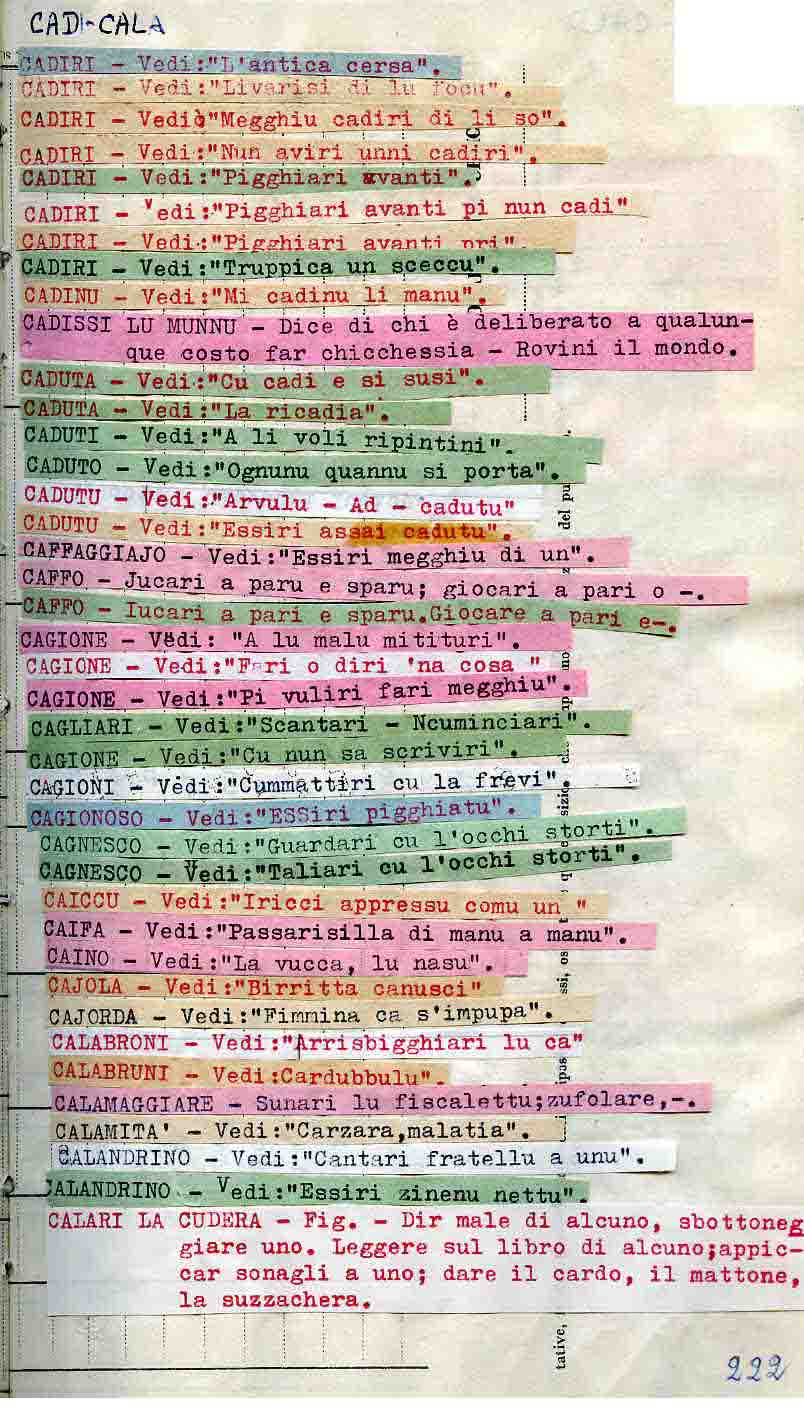 CADI-CALA
CADIRI - Vedi:"L'antica cersa".
CADIRI - Vedi:"Livarisi di lu focu".
CADIRI - Vediò"Megghiu cadiri di li so".
CADIRI - Vedi:"Nun aviri unni cadiri".
CADIRI - Vedi:"Pigghiari avanti".
CADIRI - Vedi:"Pigghiari avanti pi nun cadi"
CADIRI - Vedi:"Pigghiari avanti pri".
CADIRI - Vedi:"Truppica un sceccu".
CADINU - Vedi:"Mi cadinu li manu".
CADISSI LU MUNNU - Dice di chi è deliberato a qualun-
que costo far chicchessia - Rovini il mondo.
CADUTA - Vedi:"Cu cadi e si susi".
CADUTA - Vedi:"La ricadia".
CADUTI - Vedi:"A li voli ripintini".
CADUTO - Vedi:"Ognunu quannu si porta".
CADUTU - Vedi:"Arvulu - Ad - cadutu"
CADUTU - Vedi:"Essiri assai cadutu".
CAFFAGGIAJO - Vedi:"Essiri megghiu di un".
CAFFO - Jucari a paru e sparu; giocari a pari o -.
CAFFO - Iucari a pari e sparu.Giocare a pari e-.
CAGIONE - Vedi: "A lu malu mitituri".
CAGIONE - Vedi:"Fari o diri 'na cosa "
CAGIONE - Vedi:"Pi vuliri fari megghiu".
CAGLIARI - Vedi:"Scantari - Ncuminciari".
CAGIONE - Vedi:"Cu nun sa scriviri".
CAGIONI - Vedi:"Cummattiri cu la frevi".
CAGIONOSO - Vedi:"ESSiri pigghiatu".
CAGNESCO - Vedi:"Guardari cu l'occhi storti".
CAGNESCO - Vedi:"Taliari cu l'occhi storti".
CAICCU - Vedi:"Iricci appressu comu un "
CAIFA - Vedi:"Passarisilla di manu a manu".
CAINO - Vedi:"La vucca, lu nasu".
CAJOLA - Vedi:"Birritta canusci"
CAJORDA - Vedi:"Fimmina ca s'impupa".
CALABRONI - Vedi:"Arrisbigghiari lu ca"
CALABRUNI - Vedi:Cardubbulu".
CALAMAGGIARE - Sunari lu fiscalettu;zufolare,-.
CALAMITA' - Vedi:"Carzara,malatia".
CALANDRINO - Vedi:"Cantari fratellu a unu".
CALANDRINO - Vedi:"Essiri zinenu nettu".
CALARI LA CUDERA - Fig. - Dir male di alcuno, sbottoneg
giare uno. Leggere sul libro di alcuno;appic-
car sonagli a uno; dare il cardo, il mattone,
la suzzachera.
tative,
222